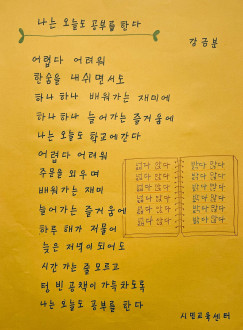 나는 오늘도 공부를 한다
강금분
어렵다 어려워
한숨을 내쉬면서도
하나 하나 배워가는 재미에
하나 하나 늘어가는 즐거움에
나는 오늘도 학교에 간다
어렵다 어려워
주문을 외우며
배워가는 재미
늘어가는 즐거움에
하루 해가 저물어
늦은 저녁이 되어도
시간 가는 줄 모르고
텅 빈 공책이 가득차도록
나는 오늘도 공부를 한다
시민교육센터